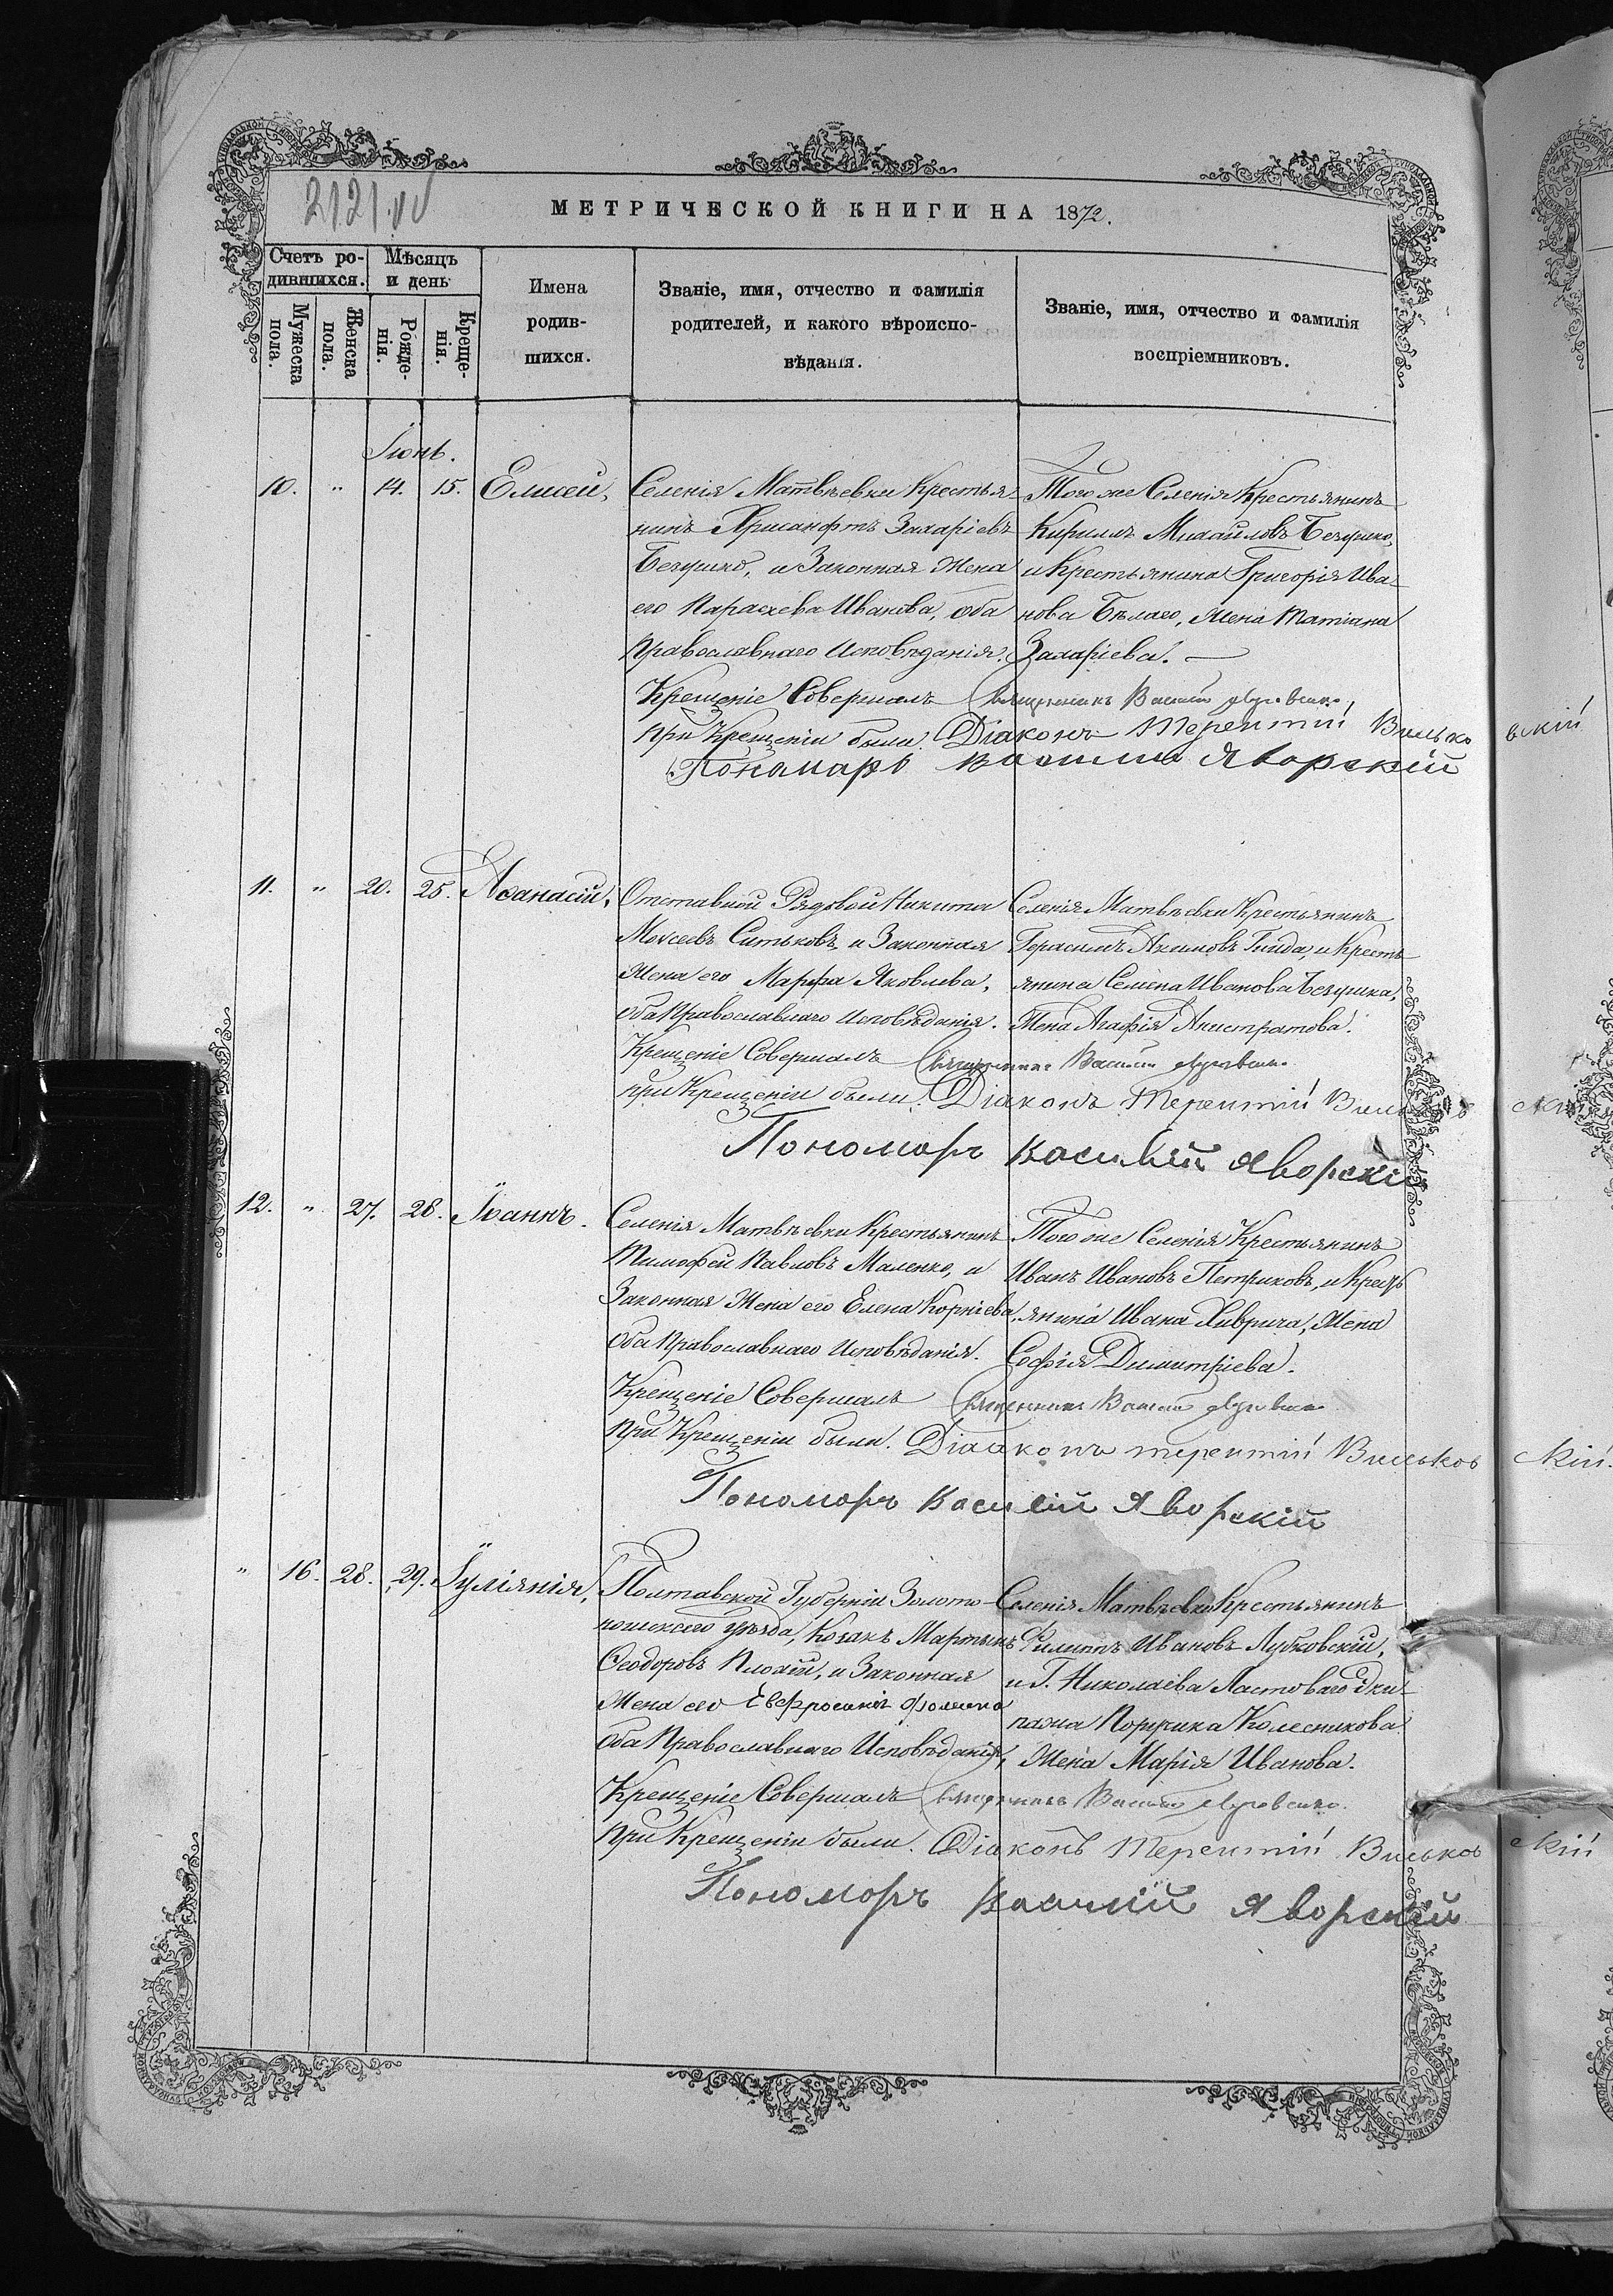 2121
МЕТРИЧЕСКОЙ КНИГИ НА 1872.
Счетъ ро-
дившихся.
Мѣсяцъ
и день
Мужеска
пола.
Женска
пола.
Рожде-
нія.
Креще-
нія.
Имена
родив-
шихся.
Званіе, имя, отчество и фамилія
родителей, и какого вѣроиспо-
вѣданія.
Званіе, имя, отчество и фамилія
воспріемниковъ.
Іюнь.
10. " 14. 15. Елисей,
Селенія Матвѣевки Крестья-
нинъ Хрисанфъ Захаріевъ
Безушко, и Законная Жена
его Параскева Иванова, оба
Православнаго Исповѣданія.
Того же Селенія Крестьянинъ
Кириллъ Михайловъ Безушко,
и Крестьянина Григорія Ива-
нова Бѣлаго, Жена Татіана
Захаріева.
Крещеніе Совершалъ Священникъ Василій
При Крещеніи были: Діаконъ Терентій Вильковскій
Пономарь Василій Яворскій
11. " 20. 25. Аѳанасій,
Отставной Рядовой Никита
Моѵсеевъ Ситьковъ и Законная
Жена его Марфа Яковлева,
оба Православнаго Исповѣданія.
Селенія Матвѣевки Крестьянинъ
Герасимъ Акимовъ Гнида, и Кресть-
янина Семена Иванова Безушка,
Жена Агафія Анистратова.
Крещеніе Совершалъ Священникъ Василій
при Крещеніи были: Діаконъ Терентій Вильковскій
Пономарь Василій Яворскій
12. " 27. 28. Іоаннъ.
Селенія Матвѣевки Крестьянинъ
Тимофей Павловъ Маленко, и
Законная Жена его Елена Корніева,
оба Православнаго Исповѣданія.
Того же Селенія Крестьянинъ
Иванъ Ивановъ Петриковъ, и Кресть-
янина Ивана Хиврича, Жена
Софія Димитріева.
Крещеніе Совершалъ Священникъ Василій
При Крещеніи были. Діаконъ терентій Вильковскій.
Пономарь Василій Яворскій
" 16. 28. 29. Іуліянія,
Полтавской Губерніи Золото-
ношскаго Уѣзда, Козакъ Мартынъ
Ѳеодоровъ Плохій, и Законная
Жена его Евфросинія Фомина
оба Православнаго Исповѣданія,
Селенія Матвѣевки Крестьянинъ
Филиппъ Ивановъ Лубковскій,
и Г. Николаева Ластоваго Эки-
пажа Поручика Колесникова
Жена Марія Иванова.
Крещеніе Совершалъ Священникъ Василій
При Крещеніи были. Діаконъ Терентій Вильковскій
Пономарь Василій Яворскій